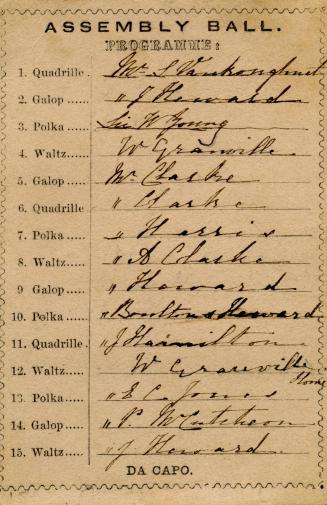 ASSEMBLY BALL.
PROGRAMME:
1. Quadrille. Mr S. Vankoughnet
2. Galop...... " J Howard
3. Polka...... Sir W Young
4. Waltz...... W Granville
5. Galop...... Mr Clarke
6. Quadrille " Clarke
7. Polka..... " Harris
8. Waltz..... " A Clarke
9 Galop...... " Howard
10. Polka..... " Howard
11. Quadrille. " J Hamilton
12. Waltz...... W Granville
Home
13. Polka..... " E C. Jones
14. Galop..... " P. McCutcheon
15. Waltz..... " J Howard
DA CAPO.